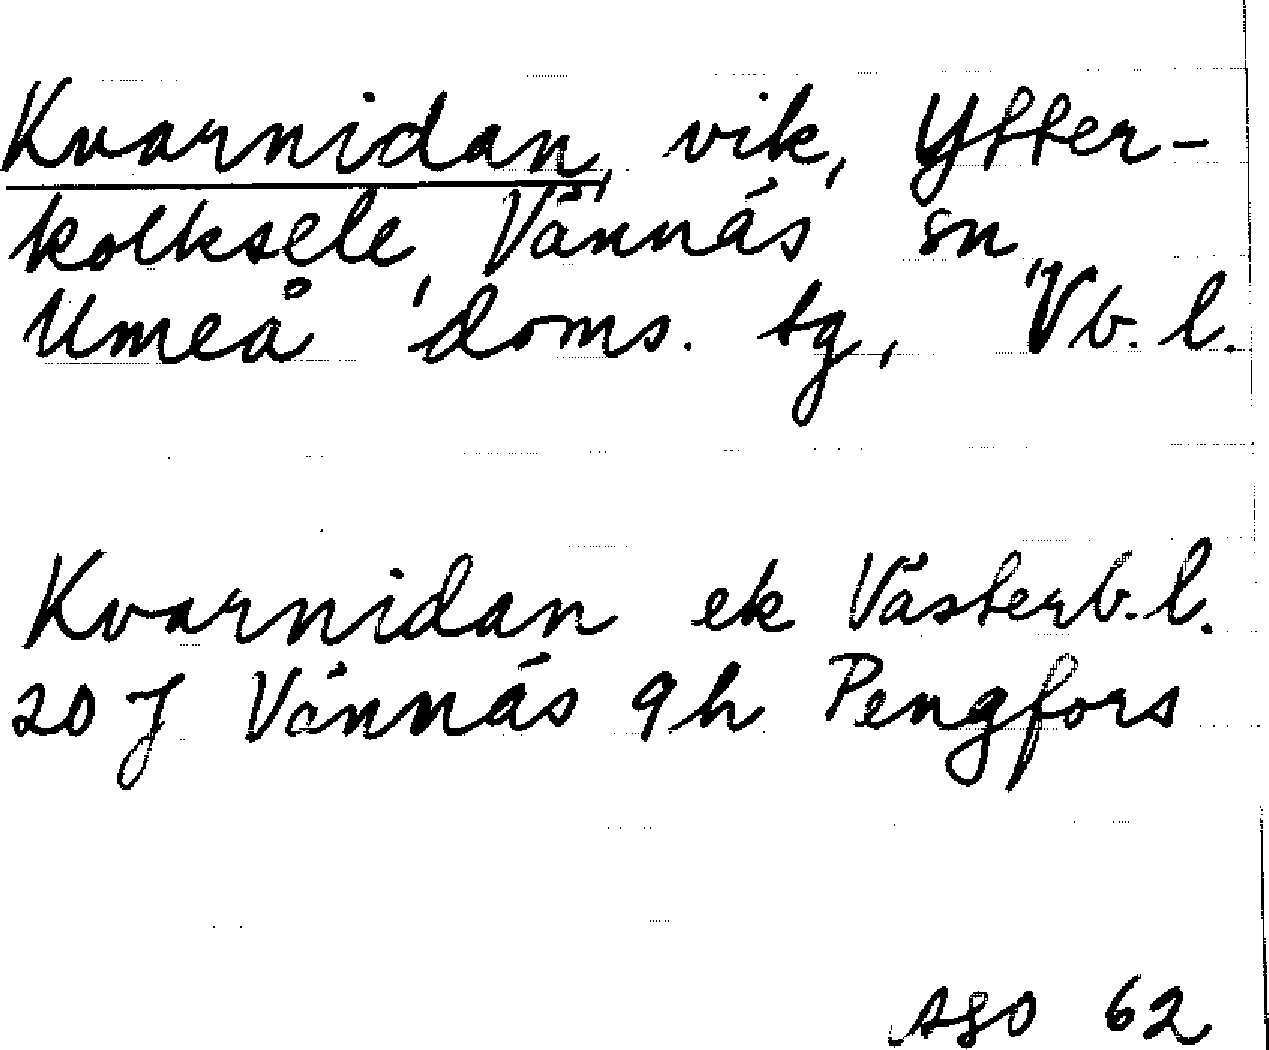 Kvarnidan, vik, Ytter-
kolksele, Vännäs sn,
Umeå doms. tg, Vb. l.
Kvarnidan ek Västerb. l.
20 J Vännäs 9h Pengfors
SGO 62